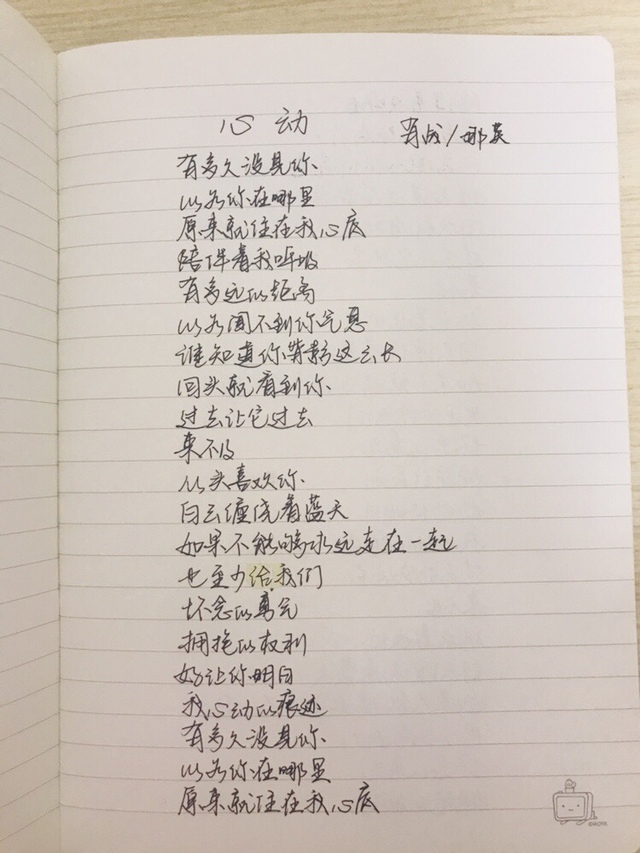 心动
肖战/那英
有多久没见你
以为你在哪里
原来就住在我心底
陪伴着我呼吸
有多远的距离
以为闻不到你气息
谁知道你背影这么长
回头就看到你
过去让它过去
来不及
从头喜欢你
白云缠绕着蓝天
如果不能够永远走在一起
也至少给我们
怀念的勇气
拥抱的权利
好让你明白
我心动的痕迹
有多久没见你
以为你在哪里
原来就住在我心底